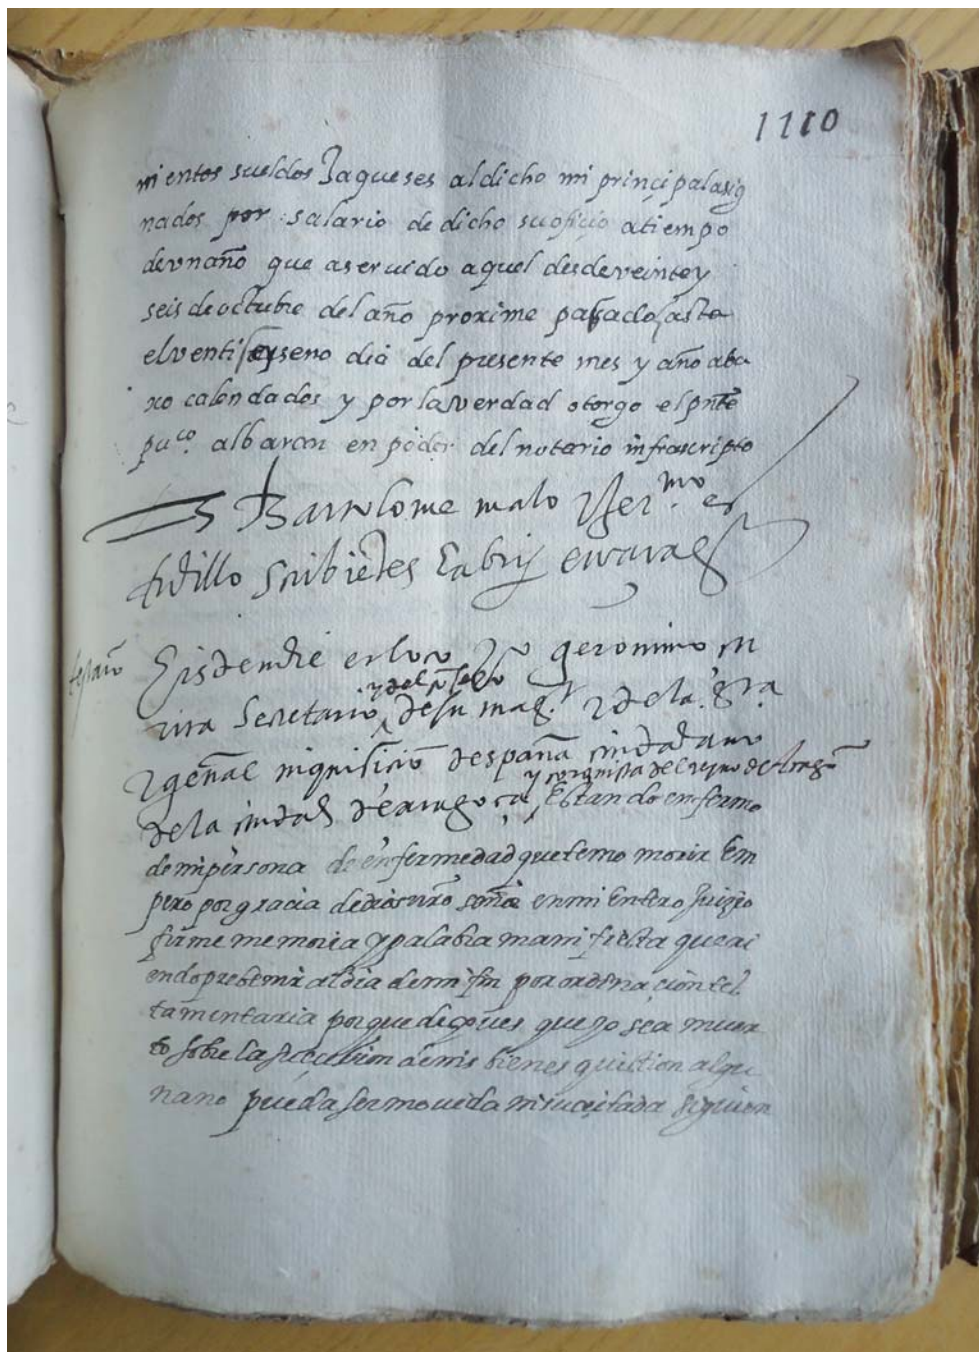 1110
mientos sueldos Jaqueses al dicho mi principal asig
nados por salario de dicho su oficio a tiempo
de vn año que a seruido aquel desde veinte y
seis de octubre del año proxime passado asta
el venti seyseno dia del presente mes y año aba
xo calendados y por la verdad otorgo el pnte
puco. albaran en poder del notario infrascripto
Ts Bartolome malo y Germo. es
tidillo habites
testamto Eisdem die et loco yo geronimo çu
rita Secretario de su magt. y de la sta.
y del consejo
y general inquisicion despaña ciudadano
de la ciudad de çaragoça, Estando enfermo
y coronista del reyno de Aragon
de mi persona de enfermedad que temo morir Em
pero por gracia de dios nro señor en mi Entero Juizio
firme memoria y palabra manifiesta quer
endo prebenir al dia de mi fin por ordinacion tes
tamentaria porque despues que yo sea muer
to sobre la sucession de mis bienes quistion algu
na no pueda ser mouida ni sucitada